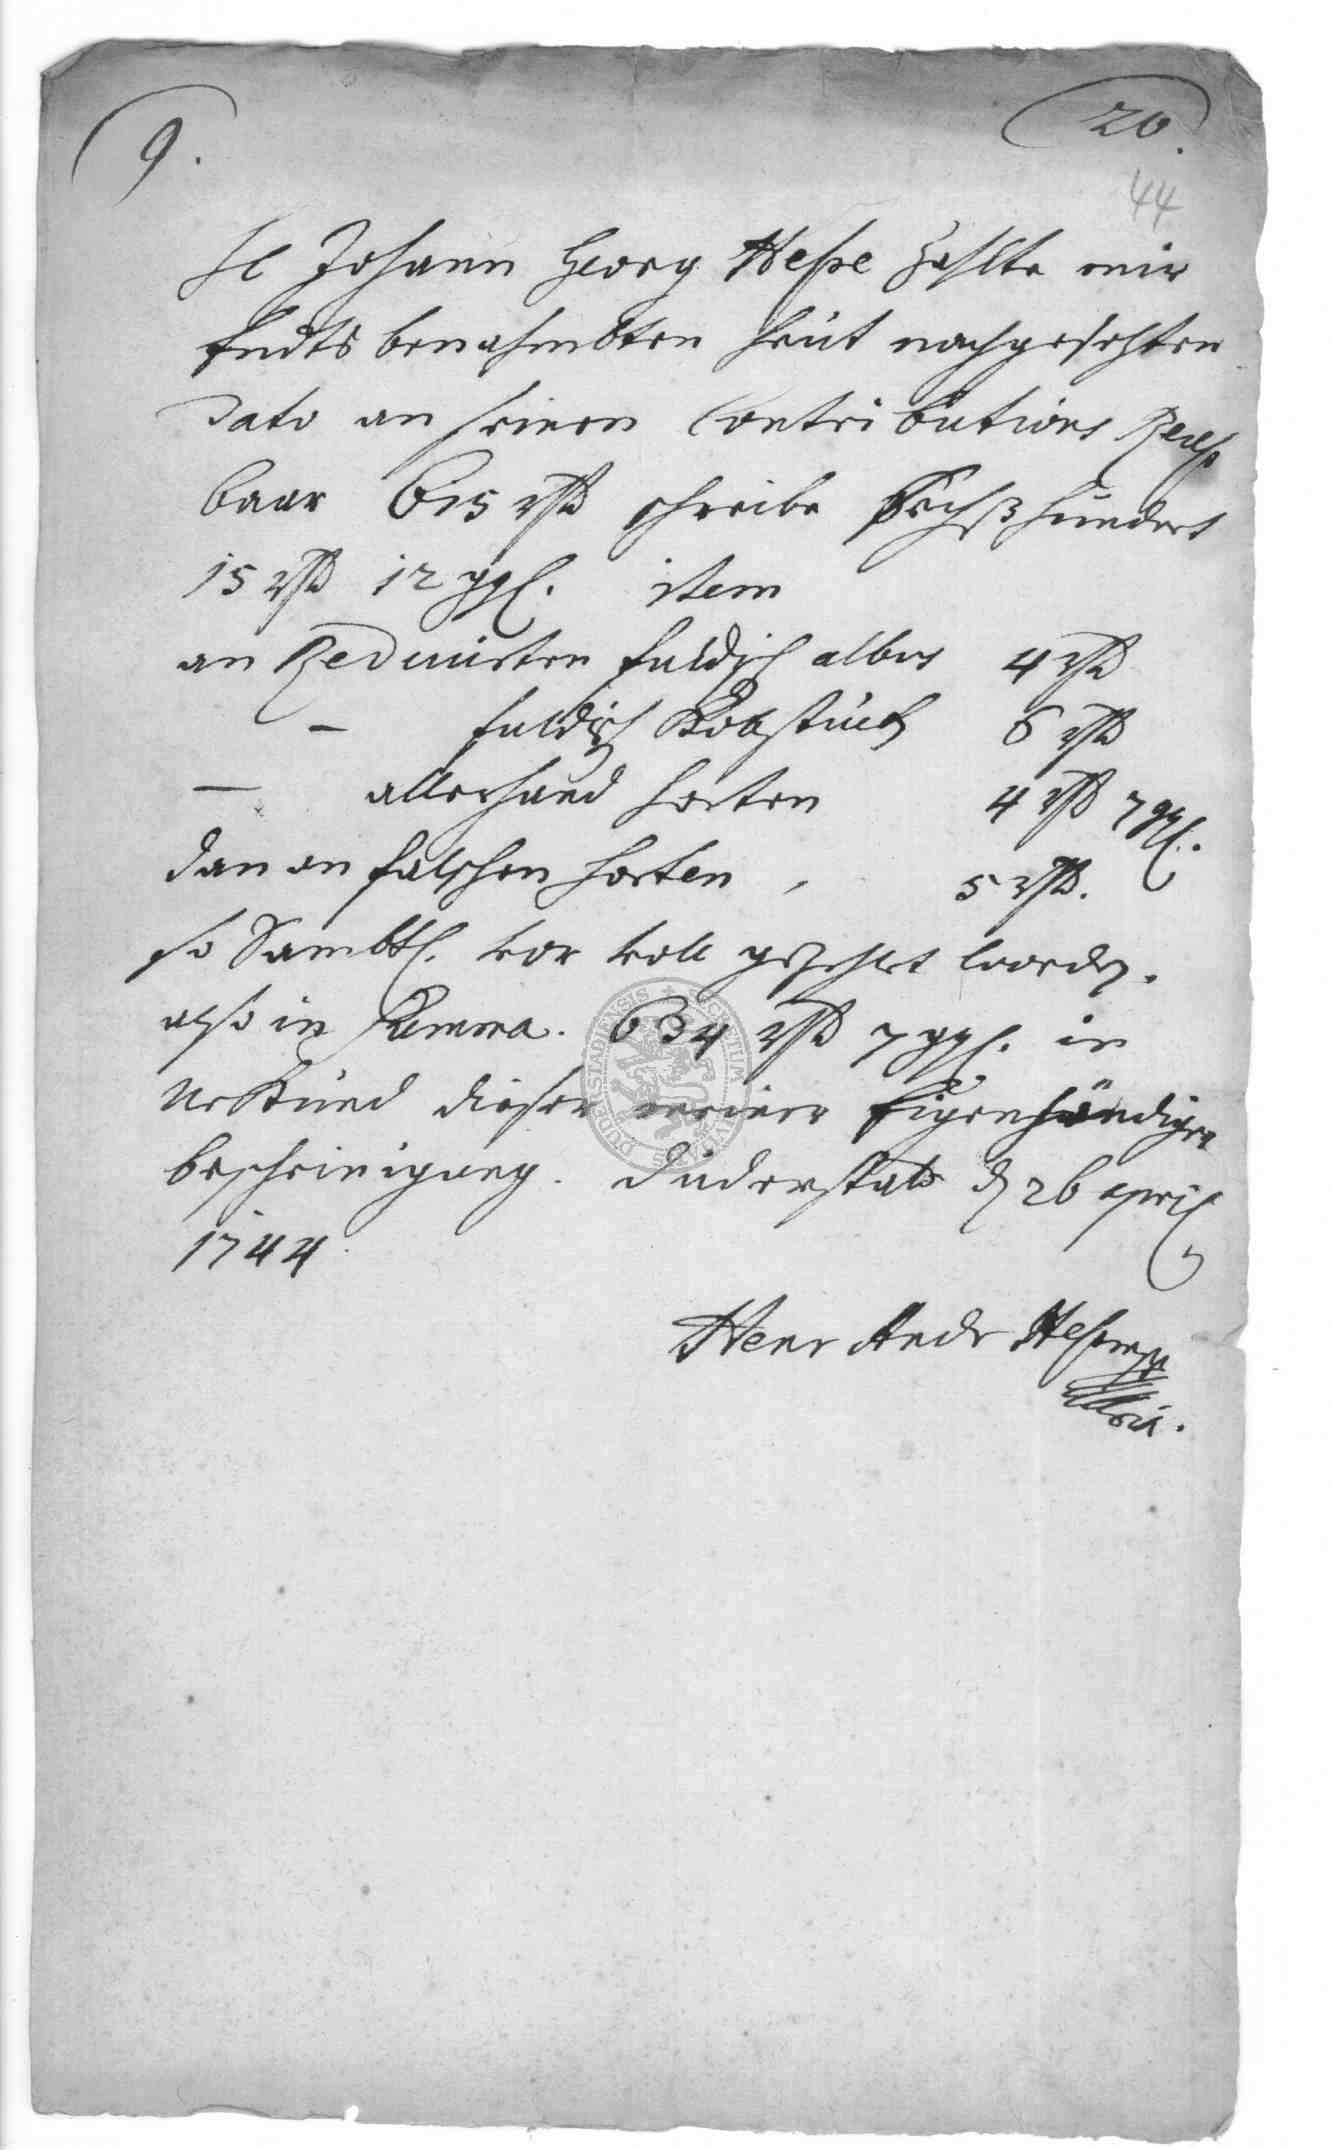 9.
20.
44
H Johann Georg Hesse Zahlte mir
Endts benahmbten heüt nachgesetzten
dato an seinen Contributions Recess
baar 615 rthl schreibe Sechßhundert
15 rthl 12 ggl. item
an Reducirten fuldisch albus 4 rthl
— fuldisch Kobstück 6 rthl
— allerhand sorten 4 rthl 7 ggl.
dan an falschen sorten, 5 rthl.
so Sambtl. vor voll gezehlt worden.
also in Summa. 634 rthl 7 ggl. in
Uhrkund dieser meiner Eigenhändigen
bescheinigung. Duderstatt d 26 april
1744
Henr Andr Hesse
DUDERSTADIENSIS